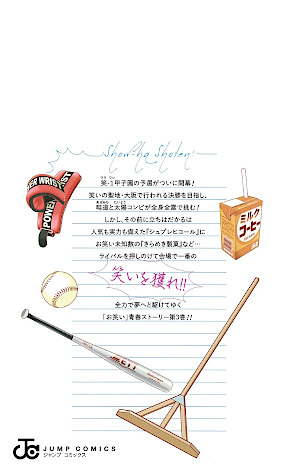 Show-ha Shoten!
笑-1甲子園の予選がついに開幕!
笑いの聖地・大阪で行われる決勝を目指し、
畦道と太陽コンビが全身全霊で挑む!
しかし、その前に立ちはだかるは
人気も実力も備えた『シュプレヒコール』に
お笑い未知数の『きらめき製菓』など…
ライバルを押しのけて会場で一番の
笑いを獲れ!!
全力で夢へと駆けてゆく
「お笑い」青春ストーリー第3巻!!
POWER WRIST
POWER
ミルク
コーヒー
JUMP COMICS
ジャンプ コミックス